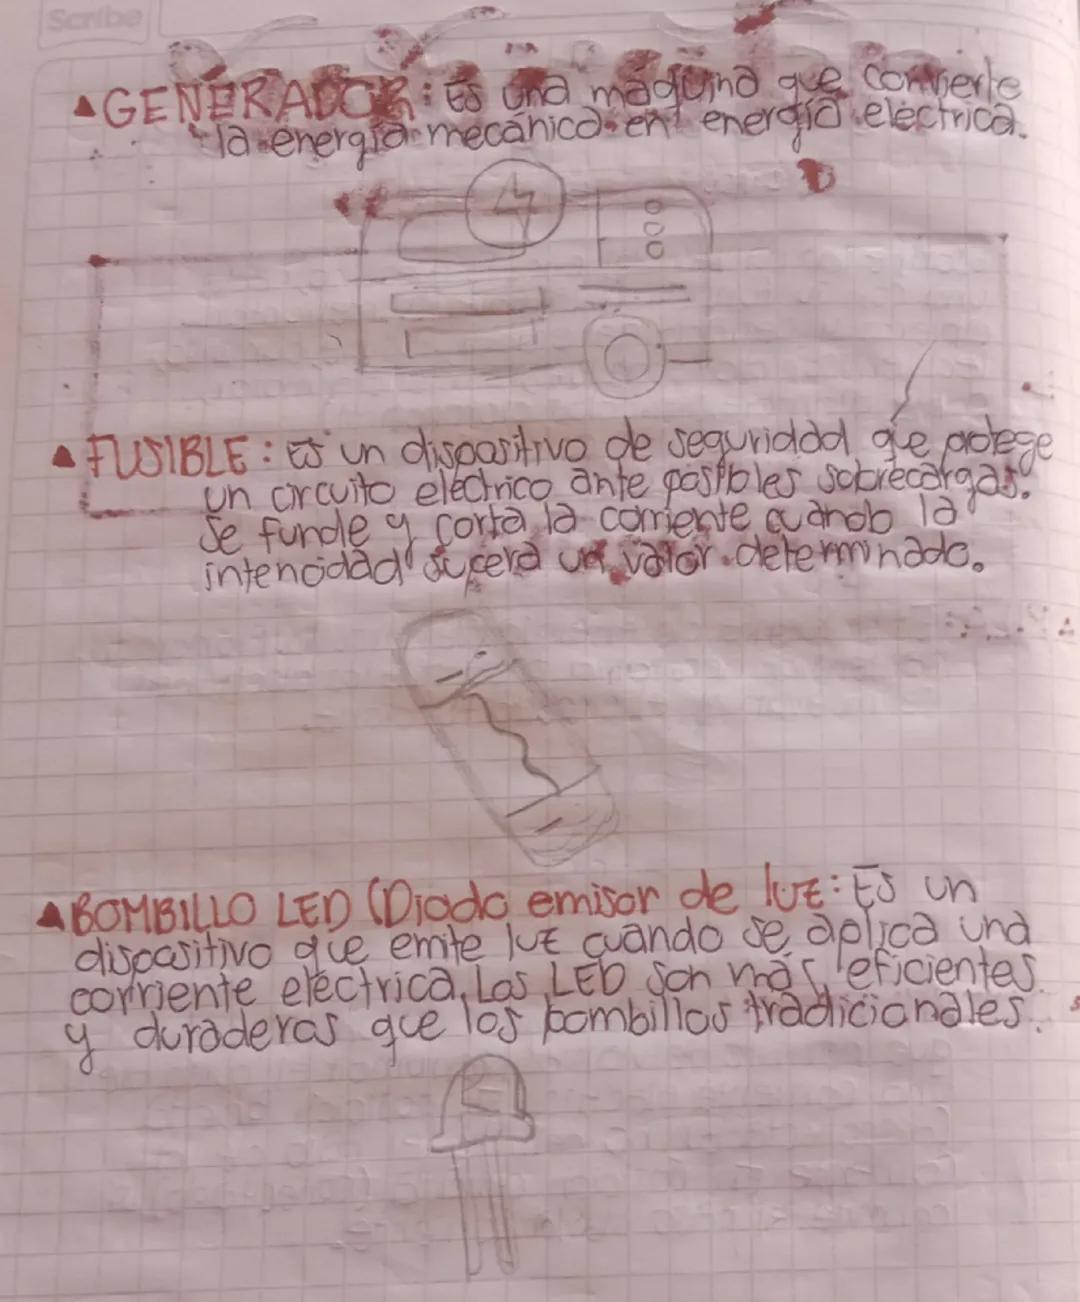 Scribe
▲GENERADOR: Es una maquina que convierte
la energía mecánica en energía eléctrica.
▲FUSIBLE: Es un dispositivo de seguridad que protege
un circuito eléctrico ante posibles sobrecargas.
Se funde y corta la corriente cuando la
intencidad supera un valor determinado.
▲BOMBILLO LED (Diodo emisor de luz: Es un
dispositivo que emite luz cuando se aplica una
corriente eléctrica, Los LED son más eficientes
y duraderos que los bombillos tradicionales.